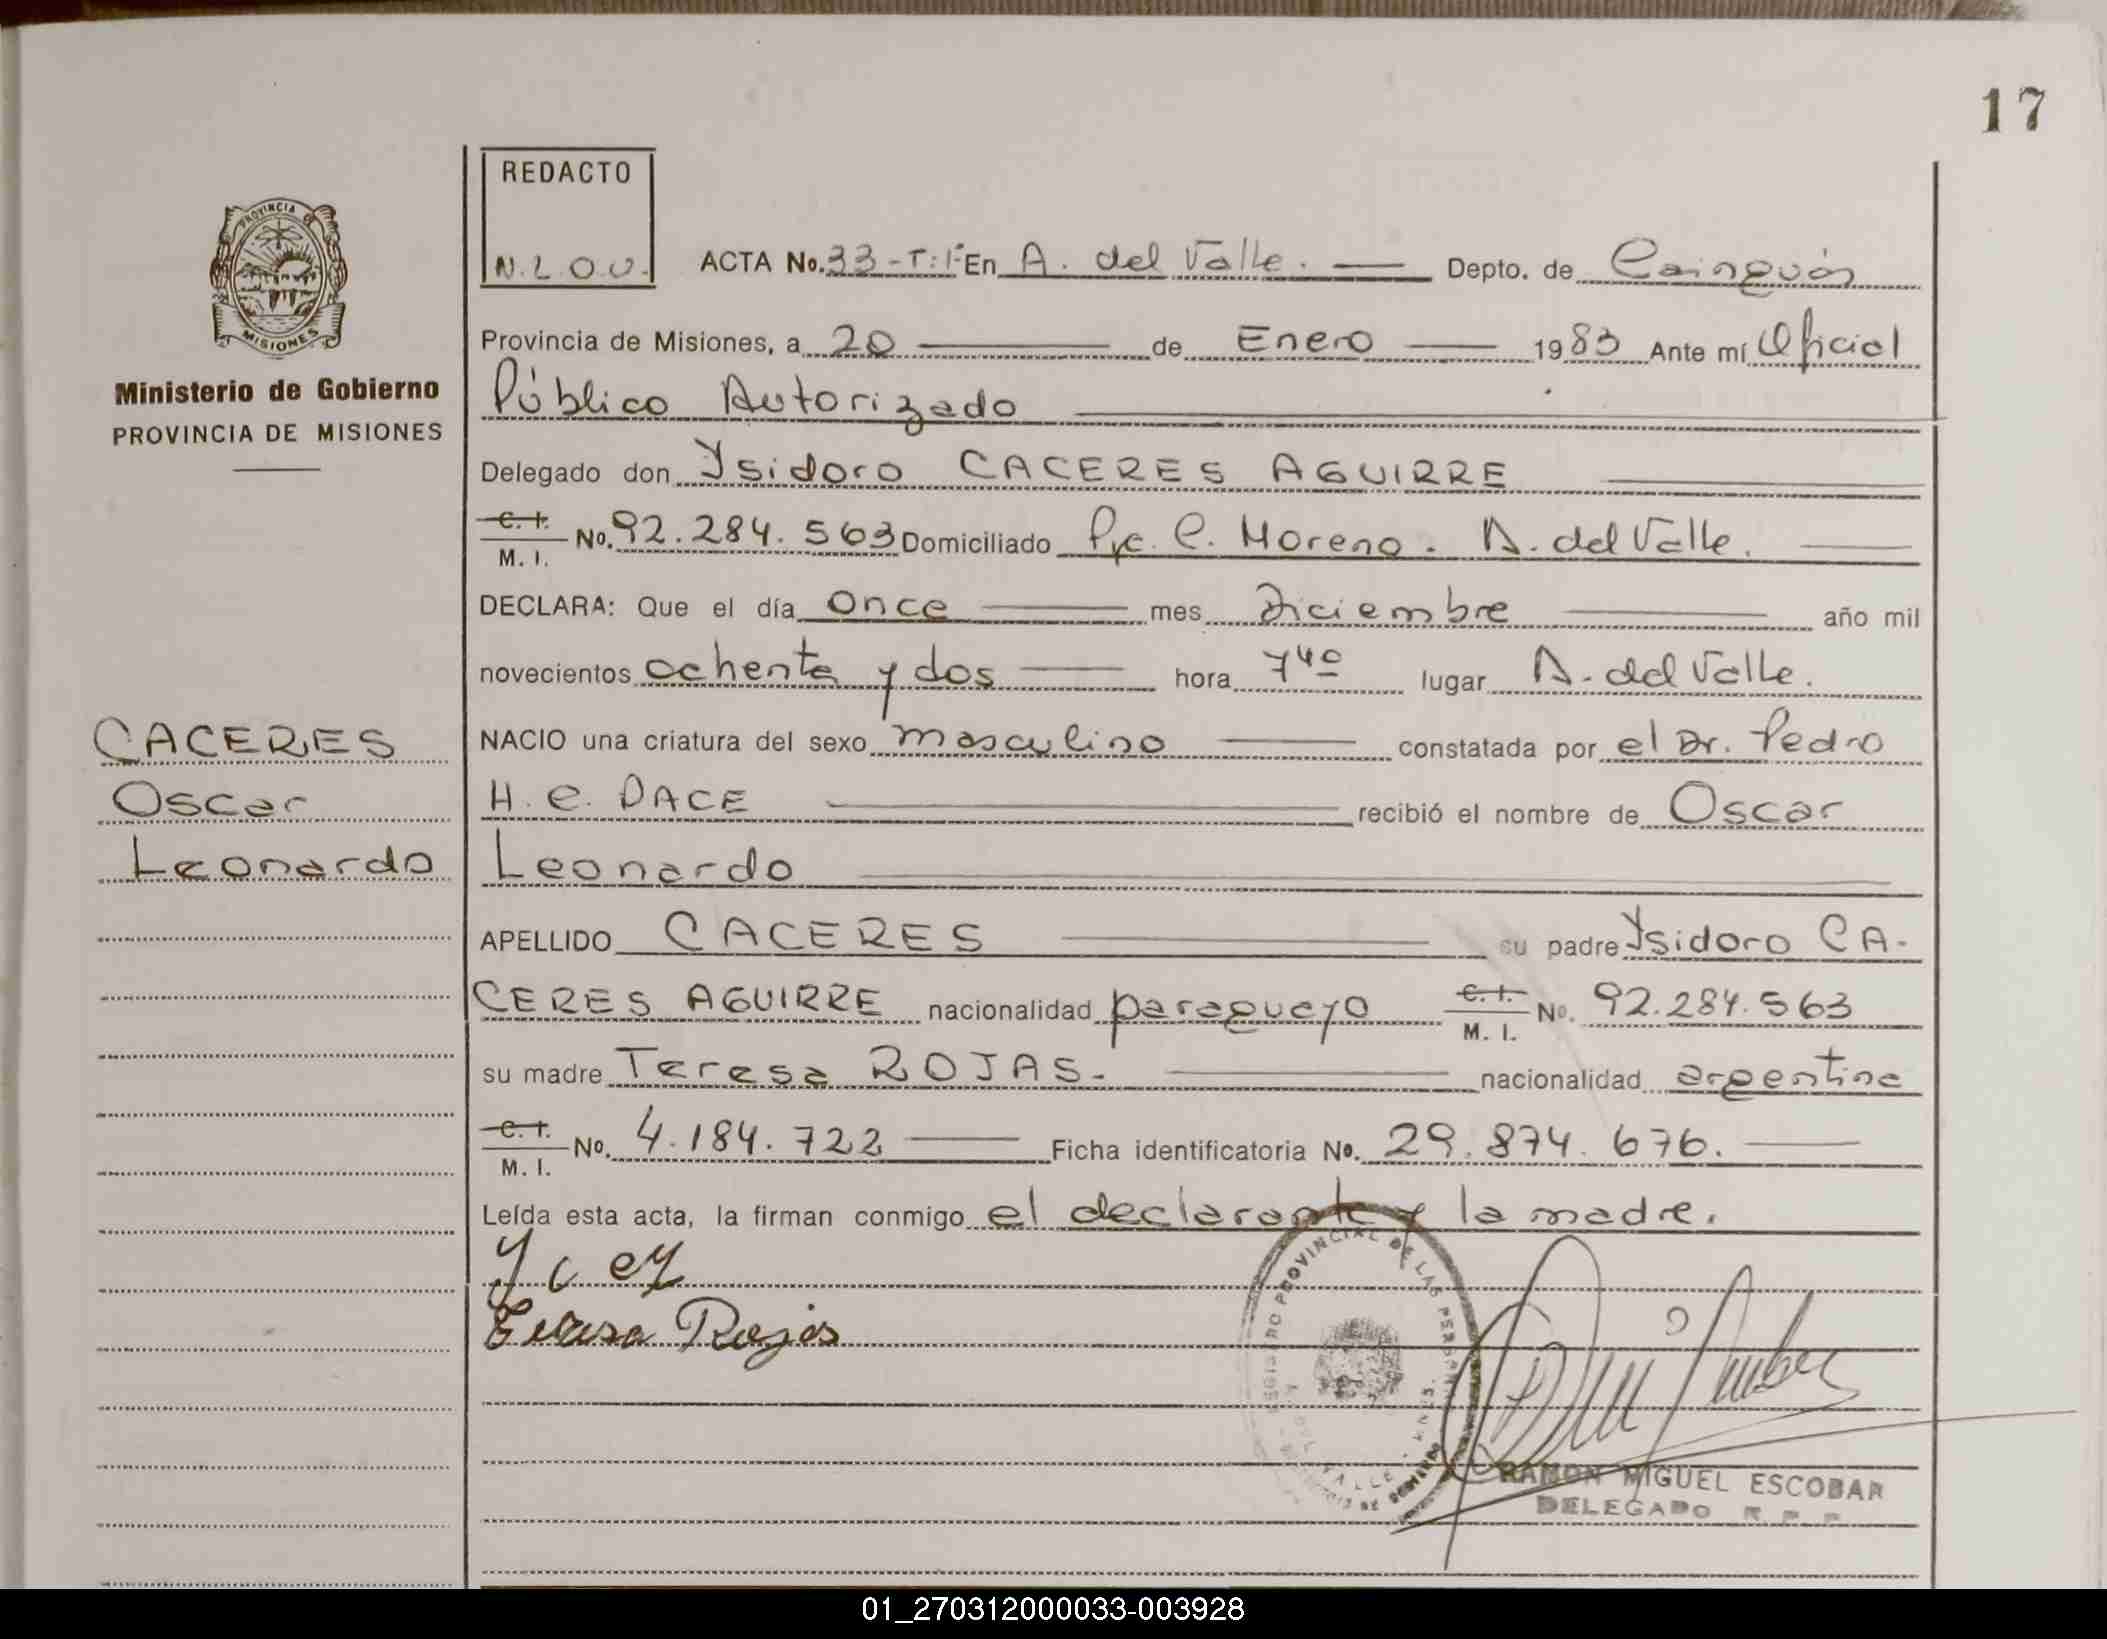 17
REDACTO
N.L.O.V.
ACTA No. 33-T:1º En A. del Valle. Depto. de Cainguás
PROVINCIA
MISIONES
Provincia de Misiones, a 20 de Enero 1983 Ante mí Oficial
Ministerio de Gobierno
Público Autorizado
PROVINCIA DE MISIONES
Delegado don Ysidoro CACERES AGUIRRE
C. I.
M. I. No. 92.284.563 Domiciliado Pje. C. Moreno. A. del Valle.
DECLARA: Que el día once mes Diciembre año mil
novecientos ochenta y dos hora 7 40 lugar A. del Valle.
CACERES
Oscar
Leonardo
NACIO una criatura del sexo masculino constatada por el Dr. Pedro
H. C. DACE recibió el nombre de Oscar
Leonardo
APELLIDO CACERES su padre Ysidoro CA-
CERES AGUIRRE nacionalidad paraguayo C. I. M. I. No. 92.284.563
su madre Teresa ROJAS. nacionalidad argentina
C. I.
M. I. No. 4.184.722 Ficha identificatoria No. 29.874.676.
Leída esta acta, la firman conmigo el declarante y la madre.
Teresa Rojas
REGISTRO PROVINCIAL DE LAS PERSONAS
DEL VALLE
RAMON MIGUEL ESCOBAR
DELEGADO R. P. P.
01_270312000033-003928